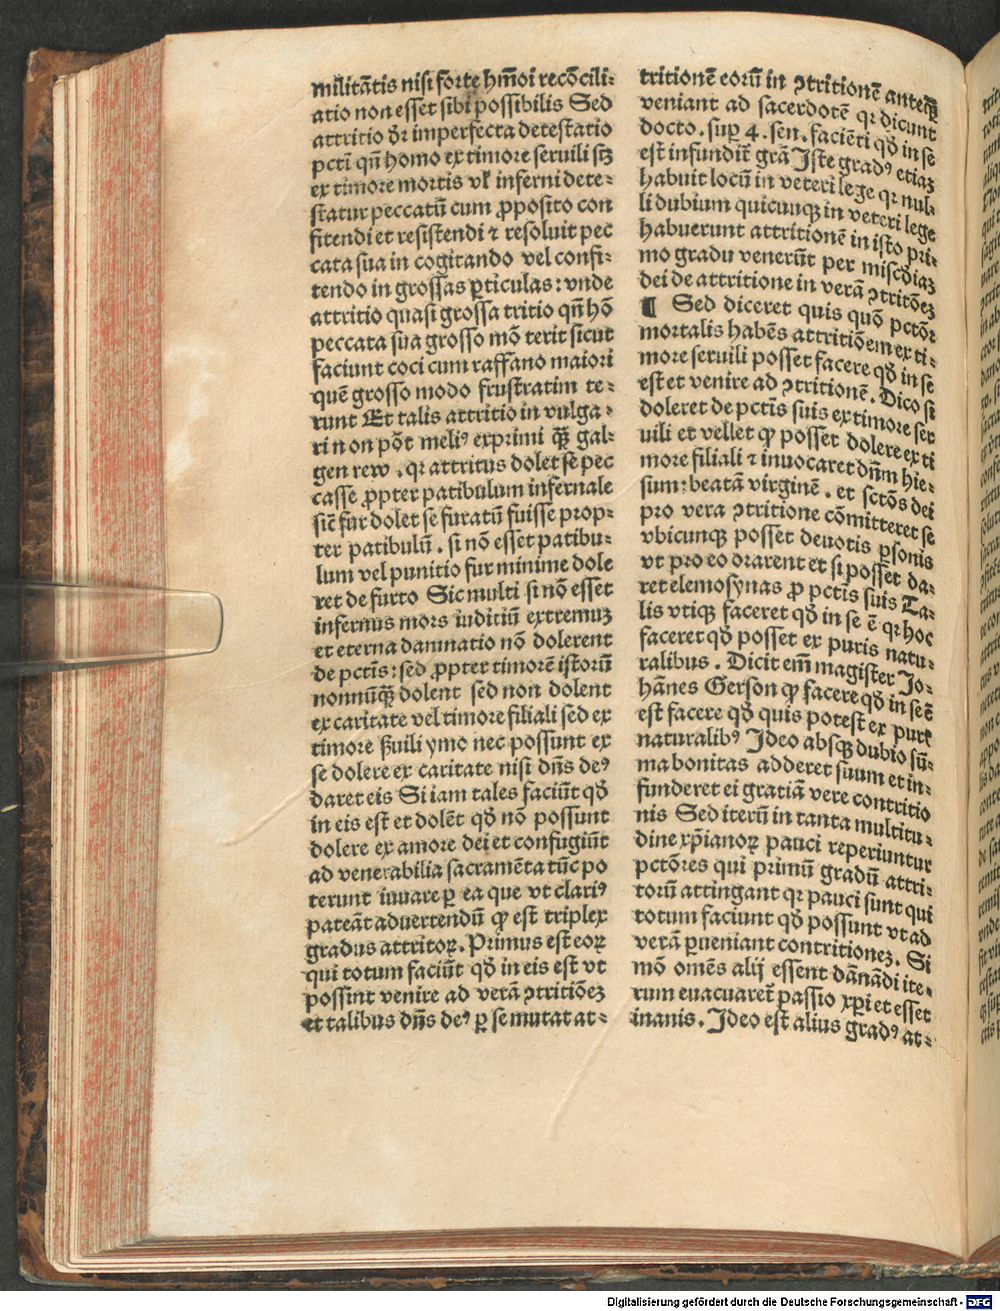 militātis nisi forte hm̄oi recōcili⸗
atio non esset sibi possibilis Sed
attritio dr̄ imperfecta detestatio
pctī qn̄ homo ex timore seruili sꝫ
ex timore mortis vl̓ inferni dete⸗
statur peccatū cum ꝓposito con
fitendi et resistendi ⁊ resoluit pec
cata sua in cogitando vel confi⸗
tendo in grossas ꝑticulas: vnde
attritio quasi grossa tritio qn̄ hō
peccata sua grosso mō terit sicut
faciunt coci cum raffano maiori
quē grosso modo frustratim te⸗
runt Et talis attritio in vulga⸗
ri non pōt meliꝰ exprimi qꝫ̄ gal⸗
gen rew . qꝛ attritus dolet se pec
casse ꝓpter patibulum infernale
sic̄ fur dolet se furatū fuisse prop⸗
ter patibulū. si nō esset patibu⸗
lum vel punitio fur minime dole
ret de furto Sic multi si nō esset
infernus mors iuditiū extremuꝫ
et eterna damnatio nō dolerent
de pctīs: sed ꝓpter timorē istorū
nonnūqꝫ̄ dolent sed non dolent
ex caritate vel timore filiali sed ex
timore ẜuili ymo nec possunt ex
se dolere ex caritate nisi dn̄s deꝰ
daret eis Si iam tales faciūt qd̄
in eis est et dolēt qd̄ nō possunt
dolere ex amore dei et confugiūt
ad venerabilia sacramēta tūc po
terunt iuuare ꝑ ea que vt clariꝰ
pateāt aduertendū ꝙ est triplex
gradus attritoꝝ. Primus est eoꝝ
qui totum faciūt qd̄ in eis est vt
possint venire ad verā ꝯtritiōeꝫ
et talibus dn̄s deꝰ ꝑ se mutat at⸗
tritionē eorū in ꝯtritionē anteqꝫ̄
veniant ad sacerdotē qꝛ dicunt
docto. suꝑ 4. sen. faciēti qd̄ in se
est infundit̄ grā Iste gradꝰ etiaꝫ
habuit locū in veteri lege qꝛ nul⸗
li dubium quicunqꝫ in veteri lege
habuerunt attritionē in isto pri⸗
mo gradu venerūt per misc̄diaꝫ
dei de attritione in verā ꝯtritōeꝫ
¶ Sed diceret quis quō pctōr
mortalis habēs attritiōem ex ti⸗
more seruili posset facere qd̄ in se
est et venire ad ꝯtritionē. Dico si
doleret de pctīs suis ex timore ser
uili et vellet ꝙ posset dolere ex ti
more filiali ⁊ inuocaret dn̄m hie⸗
sum: beatā virginē. et sctōs dei
pro vera ꝯtritione cōmitteret se
vbicunqꝫ posset deuotis ꝑsonis
vt pro eo orarent et si posset da⸗
ret elemosynas ꝓ pctīs suis Ta⸗
lis vtiqꝫ faceret qd̄ in se ē qꝛ hoc
faceret qd̄ posset ex puris natu⸗
ralibus. Dicit em̄ magister Jo⸗
hānes Gerson ꝙ facere qd̄ in se ē
est facere qd̄ quis potest ex puris
naturalibꝰ Ideo absqꝫ dubio sū⸗
ma bonitas adderet suum et in⸗
funderet ei gratiā vere contritio
nis Sed iterū in tanta multitu⸗
dine xp̄ianoꝝ pauci reperiuntur
pctōres qui primū gradū attri⸗
torū attingant qꝛ pauci sunt qui
totum faciunt qd̄ possunt vt ad
verā ꝑueniant contritioneꝫ. Si
mō omēs alij essent dānādi ite⸗
rum euacuaret̄ passio xp̄i et esset
inanis. Ideo est alius gradꝰ at⸗
Digitalisierung gefördert durch die Deutsche Forschungsgemeinschaft - DFG